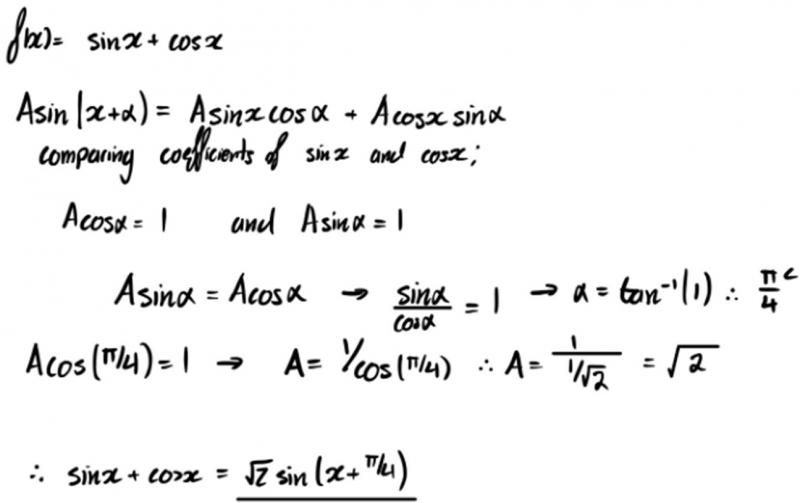 f(x)= sinx + cosx
Asin(x+α) = Asinxcosα + Acosx sinα
comparing coefficients of sinx and cosx;
Acosα = 1 and Asinα = 1
Asinα = Acosα → sinα/cosα = 1 → α = tan⁻¹(1) ∴ π/4 ᶜ
Acos(π/4) = 1 → A = 1/cos(π/4) ∴ A = 1/(1/√2) = √2
∴ sinx + cosx = √2 sin(x + π/4)